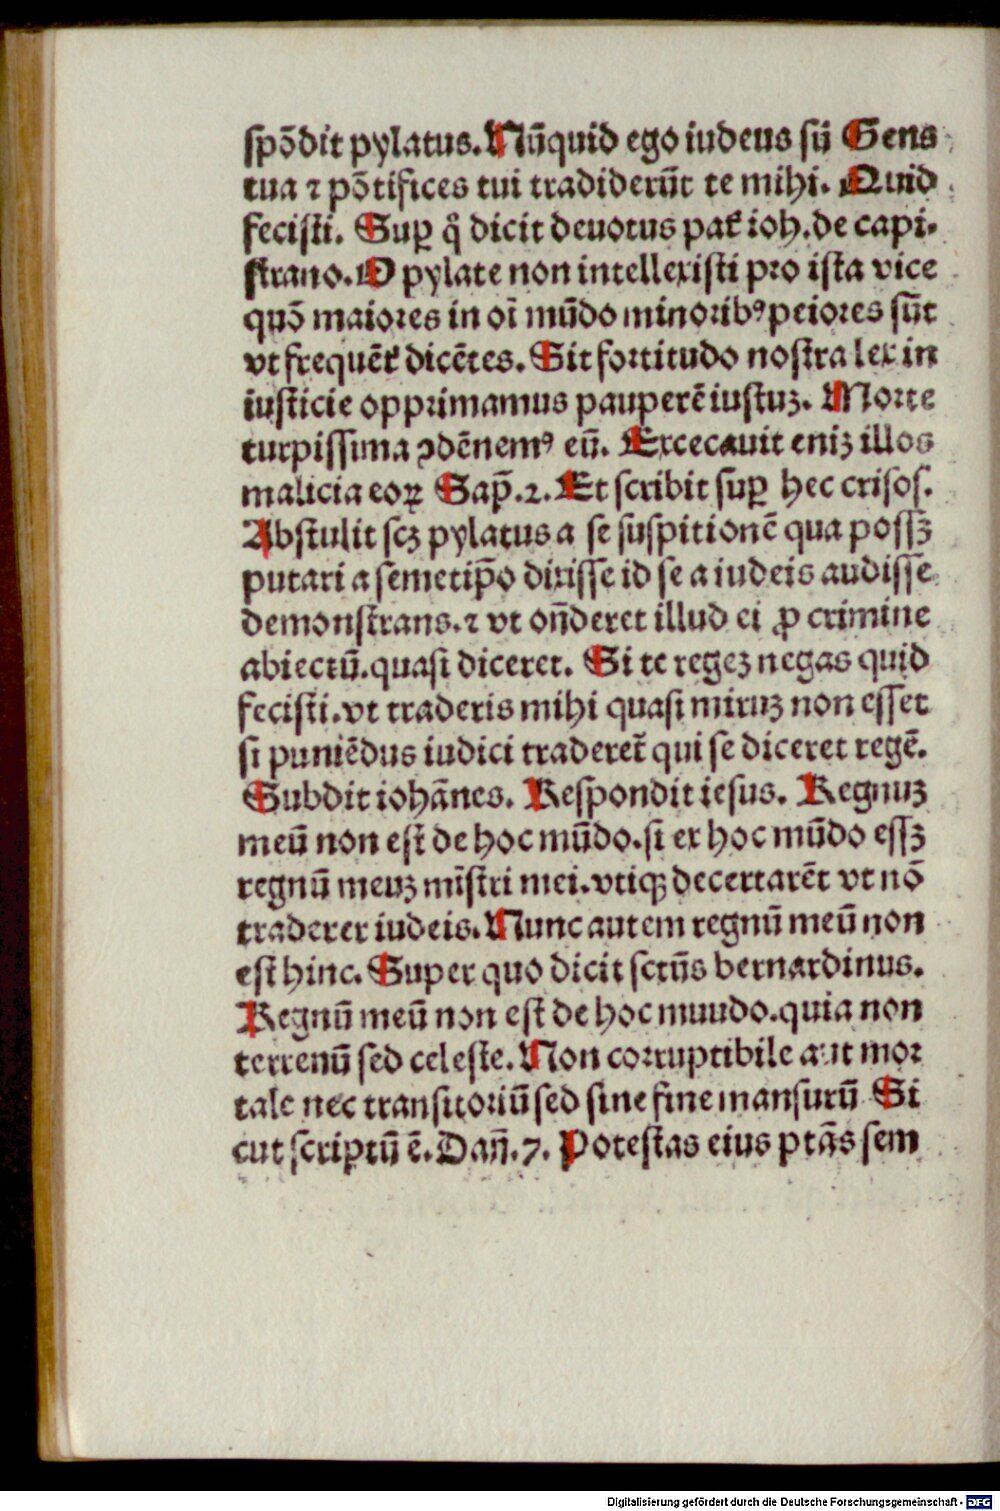 spōdit pylatus. Nūquid ego iudeus sū Gens
tua ⁊ pōtifices tui tradiderūt te mihi. Quid
fecisti. Suꝑ q̊ dicit deuotus pat̄ ioh. de capi-
strano. O pylate non intellexisti pro ista vice
quō maiores in oī mūdo minoribꝰ peiores sūt
vt frequēt̄ dicētes. Sit fortitudo nostra lex in
iusticie opprimamus pauperē iustuꝫ. Morte
turpissima ꝯdēnemꝰ eū. Excecauit eniꝫ illos
malicia eoꝝ Sap̄. 2. Et scribit suꝑ hec crisos.
Abstulit scꝫ pylatus a se suspitionē qua possꝫ
putari a semetip̄o dixisse id se a iudeis audisse
demonstrans. ⁊ vt on̄deret illud ei ꝓ crimine
abiectū. quasi diceret. Si te regeꝫ negas quid
fecisti. vt traderis mihi quasi miruꝫ non esset
si puniēdus iudici traderet̄ qui se diceret regē.
Subdit iohānes. Respondit iesus. Regnuꝫ
meū non est de hoc mūdo. si ex hoc mūdo essꝫ
regnū meuꝫ mīstri mei. vtiqꝫ decertarēt vt nō
traderer iudeis. Nunc autem regnū meū non
est hinc. Super quo dicit sctūs bernardinus.
Regnū meū non est de hoc muudo. quia non
terrenū sed celeste. Non corruptibile aut mor
tale nec transitoriū sed sine fine mansurū Si
cut scriptū ē. Dan̄. 7. Potestas eius ptās sem
Digitalisierung gefördert durch die Deutsche Forschungsgemeinschaft - DFG